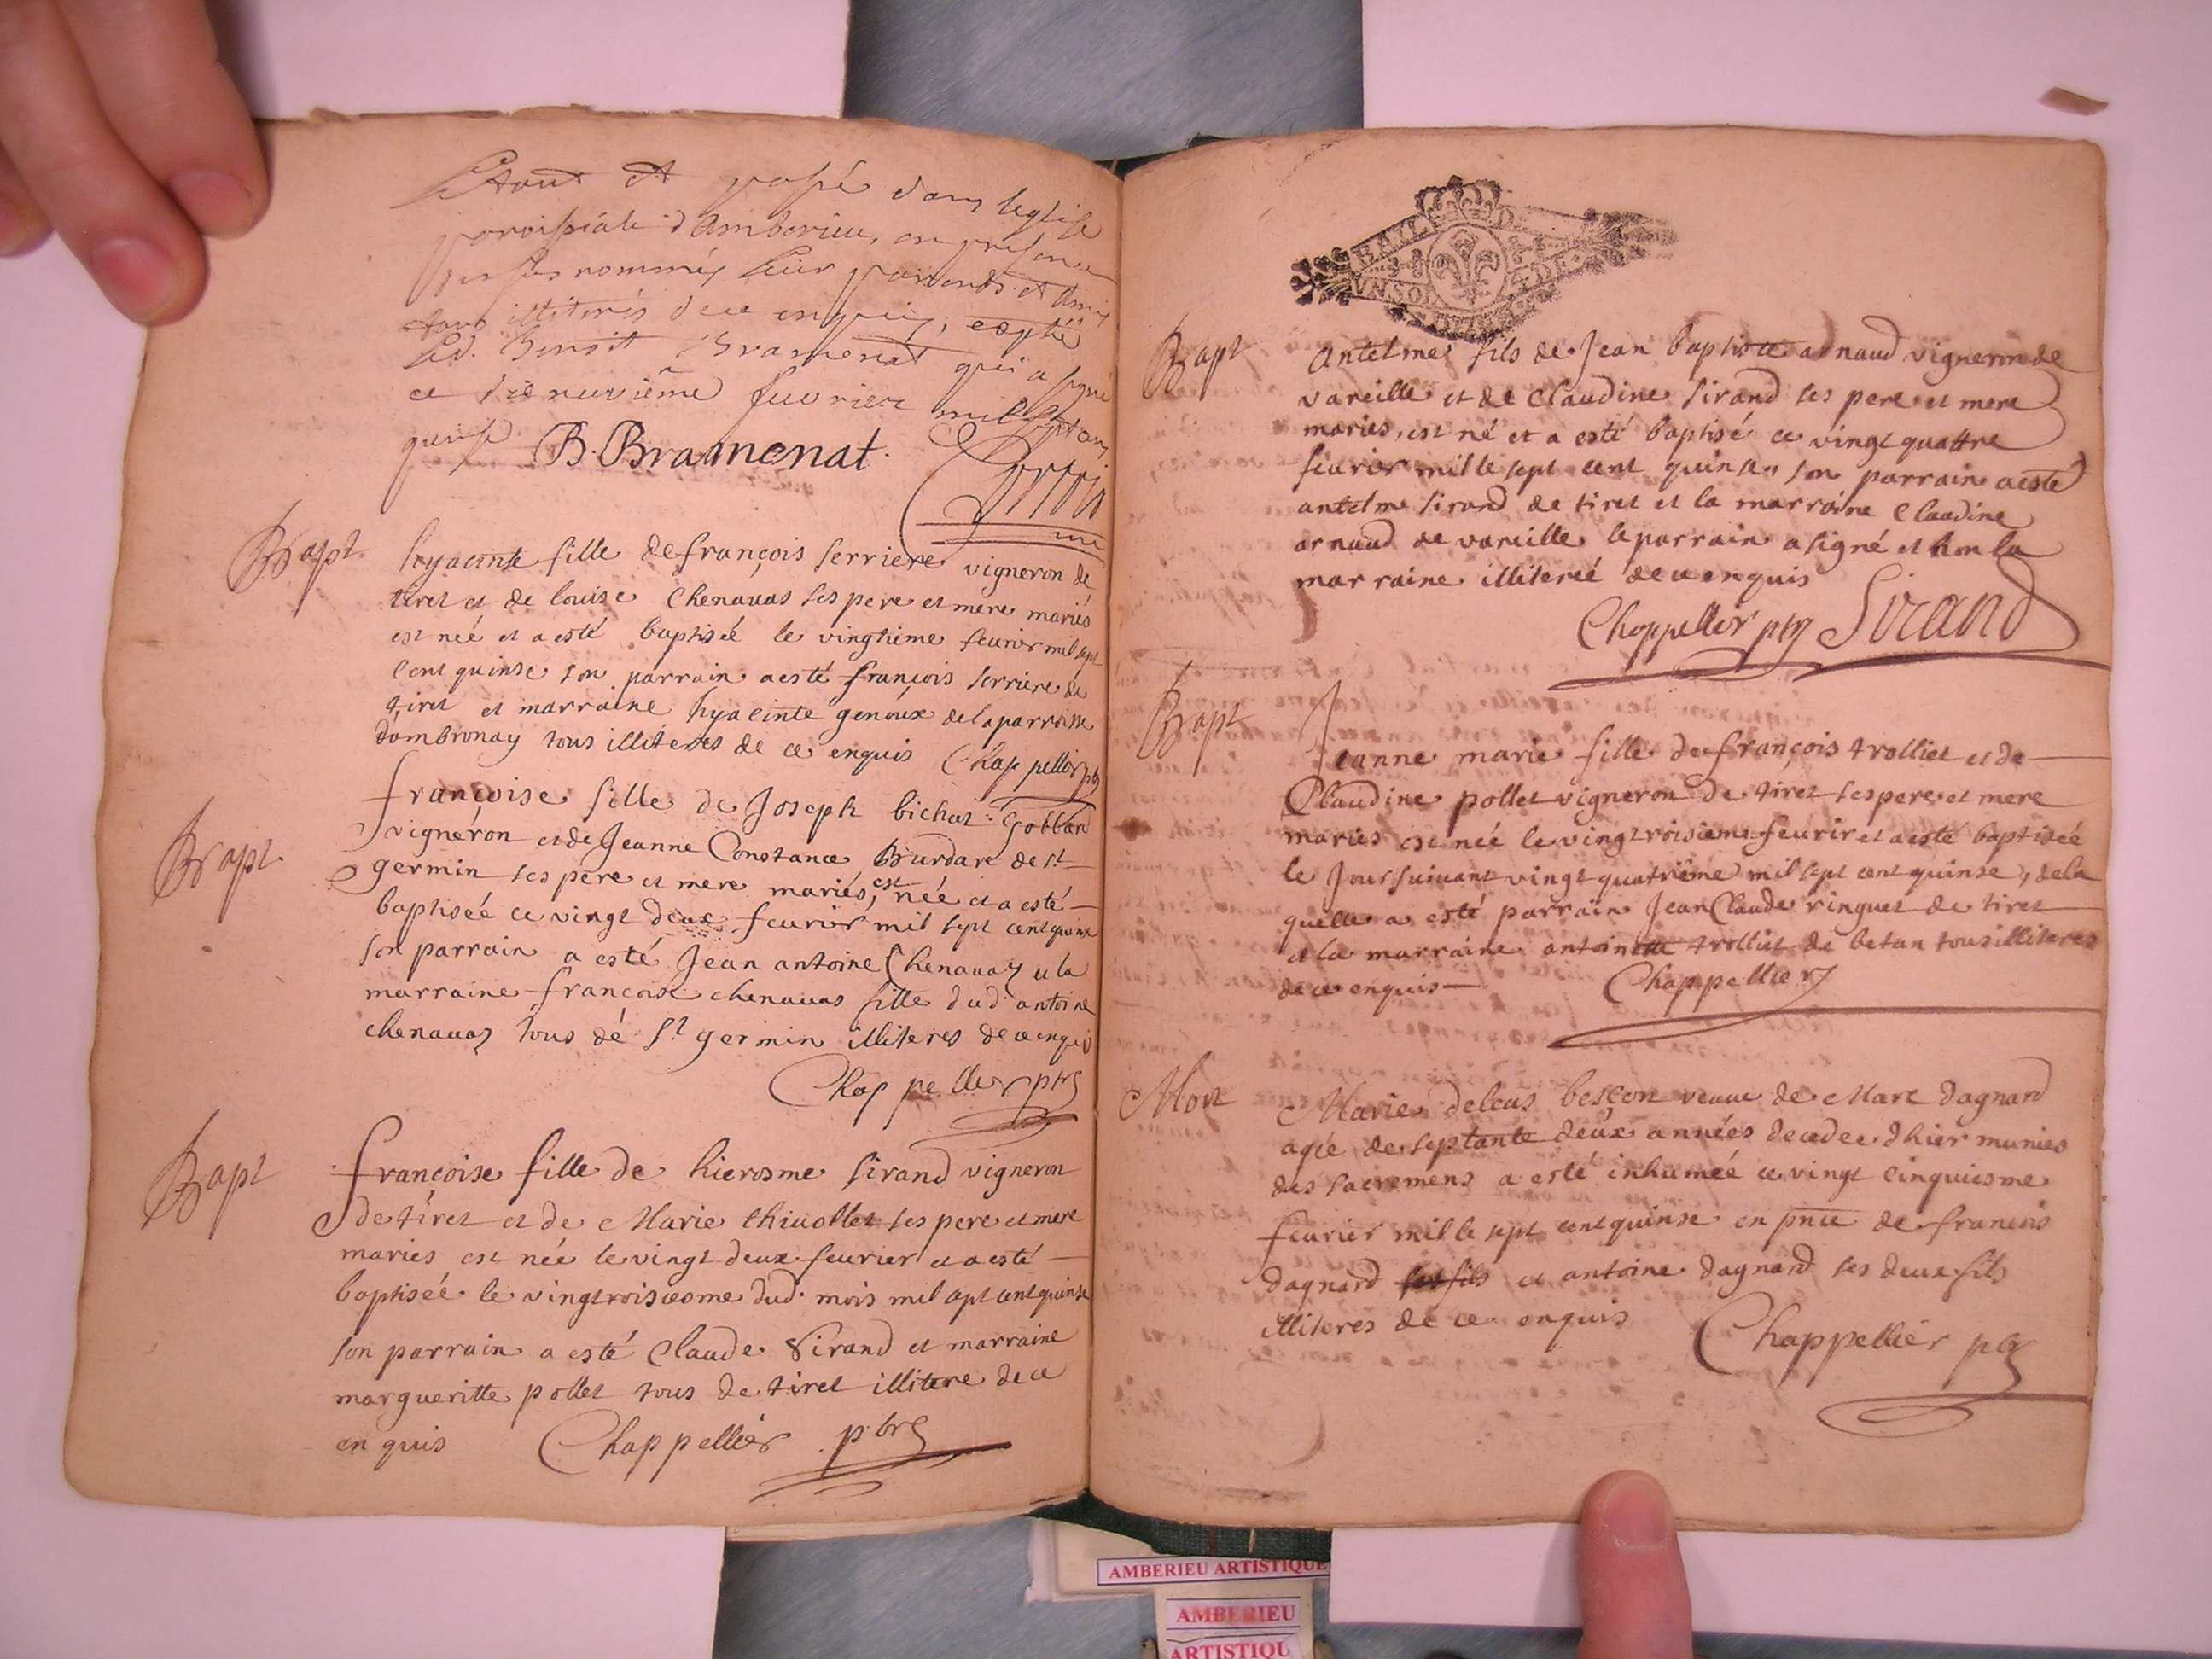 Le tout et passé dans leglise
paroissiale d'Amberieu, en presence
des susnommés leur parends et amis
tous illiterés de ce enquis, excepté
led. Benoit Bramenat qui a signé
ce dixneuvième fevrier mil sept cens
quinse B. Bramenat.
Bapt. hyacinte fille de françois serriere vigneron de
tiret et de louise chenavas ses pere et mere mariés
est néé et a esté baptiséé le vingtieme feurier mil sept
cent quinse son parrain a esté françois serriere de
tiret et marraine hyacinte genoux de la parroisse
dambronay tous illiteres de ce enquis Chappellier ptr
Bapt. françoise fille de Joseph bichat Gobban
vigneron et de Jeanne Constance Burdare de st
germin ses pere et mere mariés, est néé et a esté
baptiséé ce vingt deux feurier mil sept cent quinse
son parrain a esté Jean antoine Chenavaz et la
marraine francoise chenavas fille dud. antoine
chenavaz tous dé St germin illiteres de ce enquis
Chappellier ptr
Bapt francoise fille de hierosme sirand vigneron
de tiret et de Marie thiuollet ses pere et mere
maries est née le vingt deux feurier et a esté
baptiséé le vingtroisiesme dud. mois mil sept cent quinse
son parrain a esté Claude Sirand et marraine
margueritte pollet tous de tiret illitere de ce
en quis Chappellier ptr
Bapt antelme fils de Jean baptiste arnaud vigneron de
vareille et de claudine sirand ses pere et mere
maries, est né et a esté baptisé ce vingt quattre
feurier mille sept cent quinse, son parrain a esté
antelme sirand de tiret et la marraine Claudine
arnaud de vareille le parrain a signé et non la
marraine illitereé de ce enquis
Chappellier ptr Sirand
Bapt Jeanne marie fille de françois trolliet et de
Claudine pollet vigneron de tiret ses pere et mere
maries est néé le vingtroisieme feurier et a esté baptiséé
le Jour suivant vingt quatrieme mil sept cent quinse, de la
quelle a esté parrain Jean Claude ringuet de tiret
et la marraine antoinette trolliet de betan tous illiteres
de ce enquis Chappellier
Mort Marie deleus bescon veuue de Marc dagnard
agée de septante deux années decedee dhier munies
des sacremens a esté inhuméé ce vingt cinquiesme
feurier mille sept cent quinse en pnce de francois
dagnard ses fils et antoine dagnard ses deux fils
illiteres de ce enquis Chappellier ptr
AMBERIEU ARTISTIQUE
AMBERIEU
ARTISTIQU